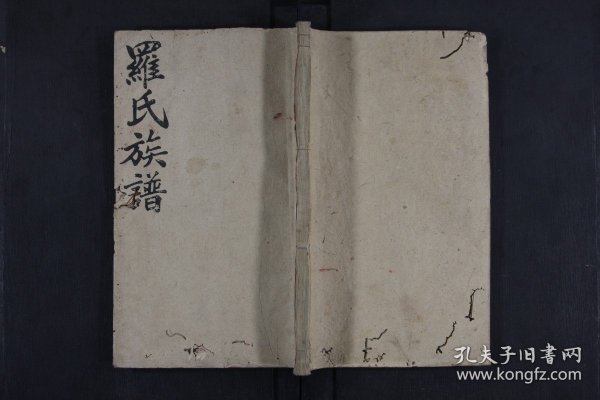 羅氏族譜
孔夫子旧書网
www.kongfz.com